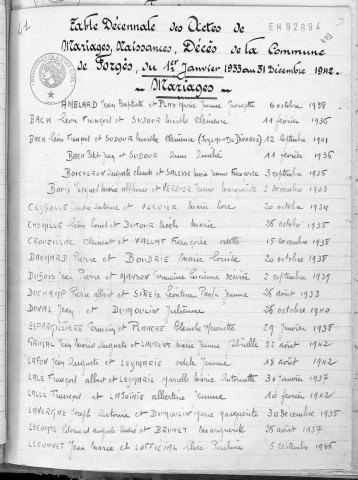 41
EH92894
Table Décennale des Actes de
Mariages, Naissances, Décès de la Commune
de Forgès, du 1er Janvier 1933 au 31 Décembre 1942.
~ Mariages ~
AMBLARD Jean Baptiste et PLAS Marie Jeanne Georgette 6 octobre 1938
BACH Léon François et SUDOUR Marthe Clémence 11 février 1936
BACH Léon François et SUDOUR Marthe Clémence (Jugement De Divorce) 12 septembre 1941
BACH Petit Jean et SUDOUR Anna Amélie 11 février 1936
BOICHERON Auguste Claude et SALESSE Maria Jeanne Françoise 3 septembre 1935
BORIE Jacques Marie Alphonse et VERDIER Jeanne Marguerite 2 décembre 1933
CEYROLLE Antoine et VERDIER Marie Rose 20 octobre 1934
CHEZALLE Léon Louis et DUFOUR Marie 26 octobre 1935
CROUZILLAC Clément et VALLAT Françoise Odette 15 décembre 1938
DAUMARD Pierre et BOUDRIE Marie Louise 20 octobre 1938
DUBOIS Jean Pierre et MANSON Germaine Lucienne Désirée 2 septembre 1939
DUCHAMP Pierre Albert et SIREIX Léontine Paula Jeanne 26 août 1933
DUVAL Jean et DUMOULIN Julienne 26 octobre 1940
ESPARGILLIERE Germain et PLANCHE Blanche Henriette 29 janvier 1938
GRIMAL Jean Marie Auguste et LAURENT Marie Jeanne Gabrielle 22 août 1942
LAFON Jean Auguste et LEYMARIE Odile Jeanne 18 août 1942
LALE François Albert et LEYMARIE Marcelle Marie Antoinette 30 janvier 1937
LALLE François et LAJOINIE Albertine Jeanne 10 février 1942
LAVERGNE Joseph Antoine et DUMOULIN Marie Marguerite 30 décembre 1935
LECOMTE Edouard Auguste André et BRUNET Marguerite 25 août 1937
LECONNET Jean Marie et LOFFICIAL Elise Pauline 5 septembre 1936